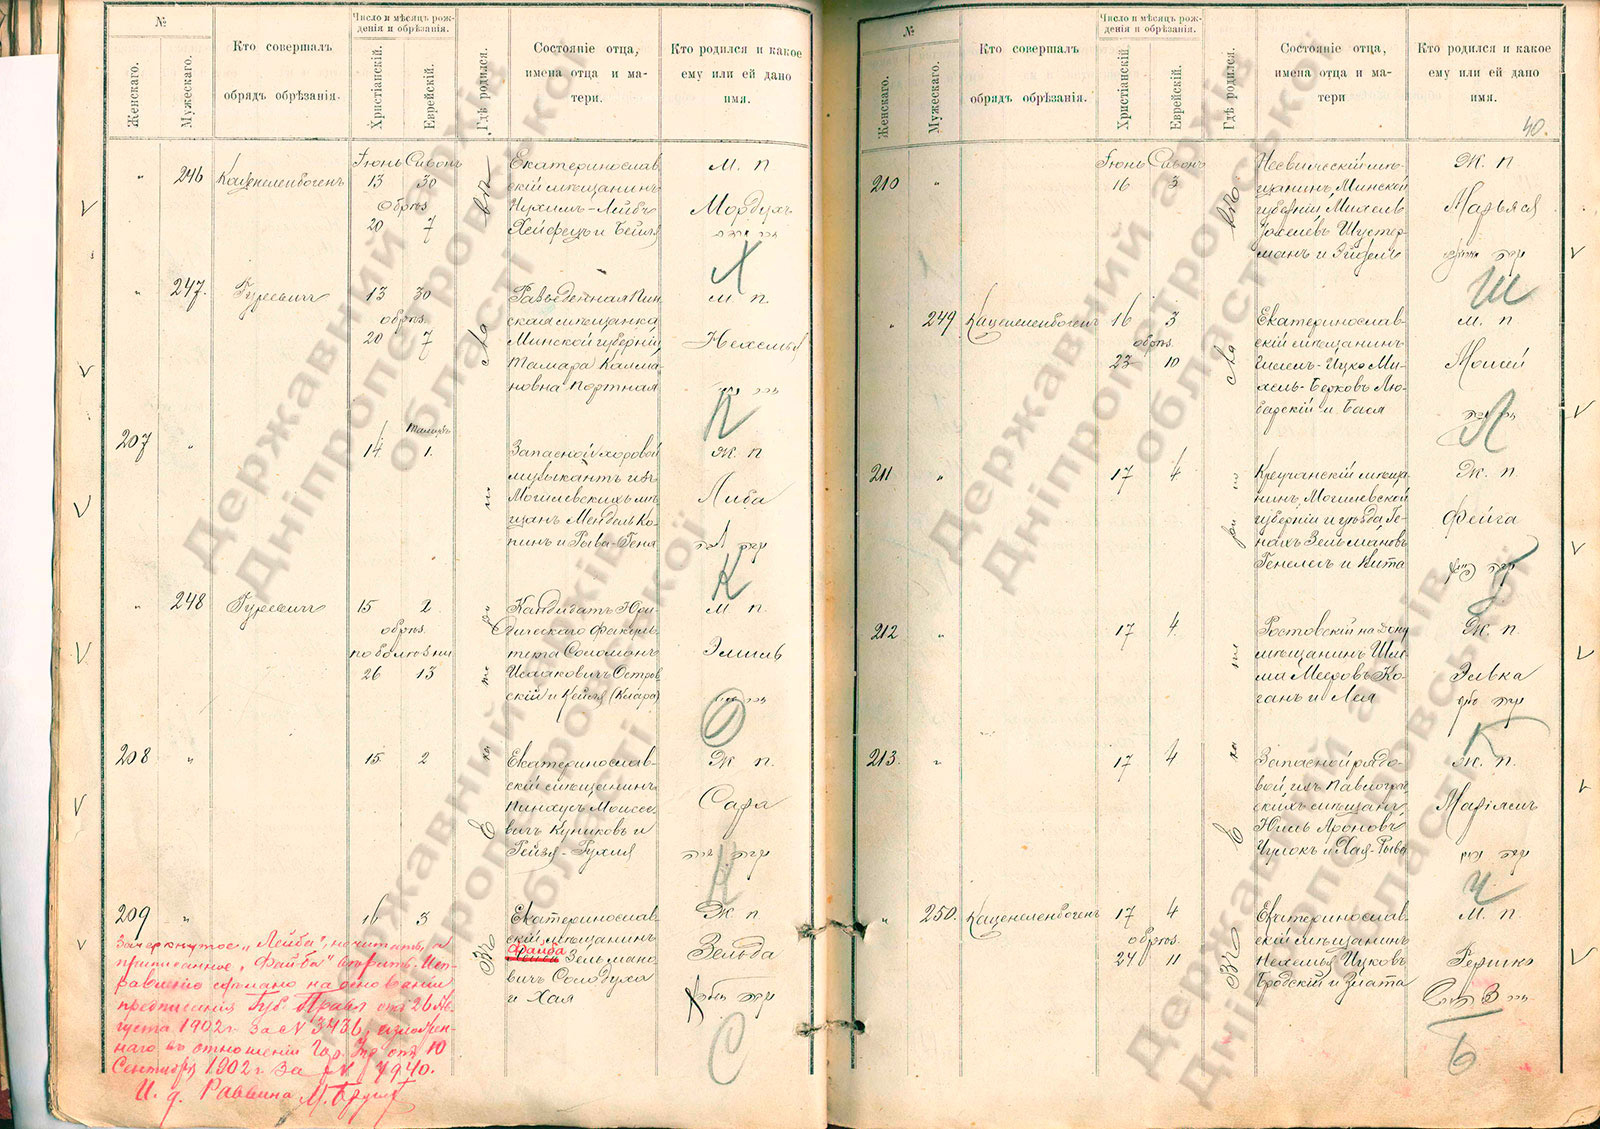 №
Число и мѣсяцъ рож-
денія и обрѣзанія.
Женскаго.
Мужескаго.
Кто совершалъ
обрядъ обрѣзанія.
Христіанскій.
Еврейскій.
Гдѣ родился.
Состояніе отца,
имена отца и ма-
тери.
Кто родился и какое
ему или ей дано
имя.
246
Каценеленбогенъ
Іюнь Сивонъ
13 30
обрѣз.
20 7
Екатеринослав
скій мѣщанинъ
Нухимъ-Лейбъ
Хейфецъ и Бейля
М. п
Мордухъ
Х
247.
Гуревичъ
13 30
обрѣз.
20 7
Разведенная Пин
ская мѣщанка
Минской губерніи
Тамара Калма
новна Портная
М п.
Нехемья
П
207
14 1.
Запасной хоровой
музыкантъ изъ
Могилевскихъ мѣ
щанъ Мендель Ко
пинъ и Рыва-Геня
Ж. п
Либа
К
248
Гуревичъ
15 2
обрѣз.
по болѣзни
26 13
Кандидатъ Юри
дическаго факуль
тета Соломонъ
Исааковичъ Остров
скій и Кейля (Клара)
М п.
Эмиль
О
208
15 2
Екатеринослав-
скій мѣщанинъ
Пинхусъ Моисее
вичъ Куниковъ и
Рейзя-Рухля
Ж п.
Сара
К
209
16 3
Екатеринослав-
скій мѣщанинъ
Файба
Зельмано
вичъ Солодуха
и Хая
Ж п
Зельда
С
Зачеркнутое „Лейба“, не читать, а
приписанное „Файба“ вѣрить. Исп-
равленіе сдѣлано на основаніи
предписанія Губ. Правл отъ 26 Ав-
густа 1902 г. за № 3436, изложен-
наго въ отношеніи Гор. Упр отъ 10
Сентября 1902 г за № 7940.
И. д. Раввина
Въ Екатеринославѣ
№
Число и мѣсяцъ рож-
денія и обрѣзанія.
Женскаго.
Мужескаго.
Кто совершалъ
обрядъ обрѣзанія.
Христіанскій.
Еврейскій.
Гдѣ родился.
Состояніе отца,
имена отца и ма-
тери
Кто родился и какое
ему или ей дано
имя.
40.
210
Іюнь Сивонъ
16 3
Несвижскій мѣ-
щанинъ Минской
губерніи Михель
Іоселевъ Шустер-
манъ и Эйдель
Ж. п.
Марьяся
Ш
249
Каценеленбогенъ
16 3
обрѣз.
23 10
Екатеринослав-
скій мѣщанинъ
Гилель-Ицко Ми-
хель-Берковъ Лю-
барскій и Бася
М. п.
Мошей
Л
211
17 4
Кричанскій мѣща-
нинъ, Могилевской
губерніи и уѣзда Ге-
нахъ Зельмановъ
Генелесъ и Кита
Ж. п.
Фейга
212
17 4
Ростовскій на Дону
мѣщанинъ Шле-
ма Мееровъ Ко-
ганъ и Лея
Ж. п.
Эльвка
К
213.
17 4
Запасной рядо-
вой изъ Павлоград
скихъ мѣщанъ
Юдель Ароновъ
Чулокъ и Хая-Рыва
Ж. п.
Маріямъ
Ч
250.
Каценеленбогенъ
17 4
обрѣз.
24 11
Екатеринослав-
скій мѣщанинъ
Нехемья Ицковъ
Бродскій и Злата
М. п.
Гершко
Б
Въ Екатеринославѣ
Державний архів
Дніпропетровської
області